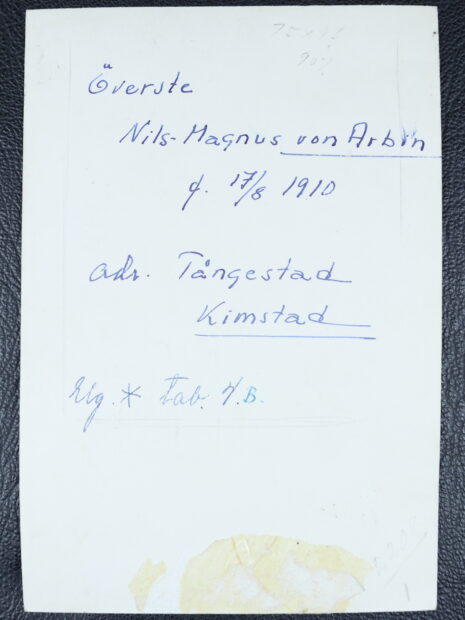 Överste
Nils-Magnus von Arbin
f. 17/8 1910
adr. Tångestad
Kimstad
Elg. * Tab. 4.B.